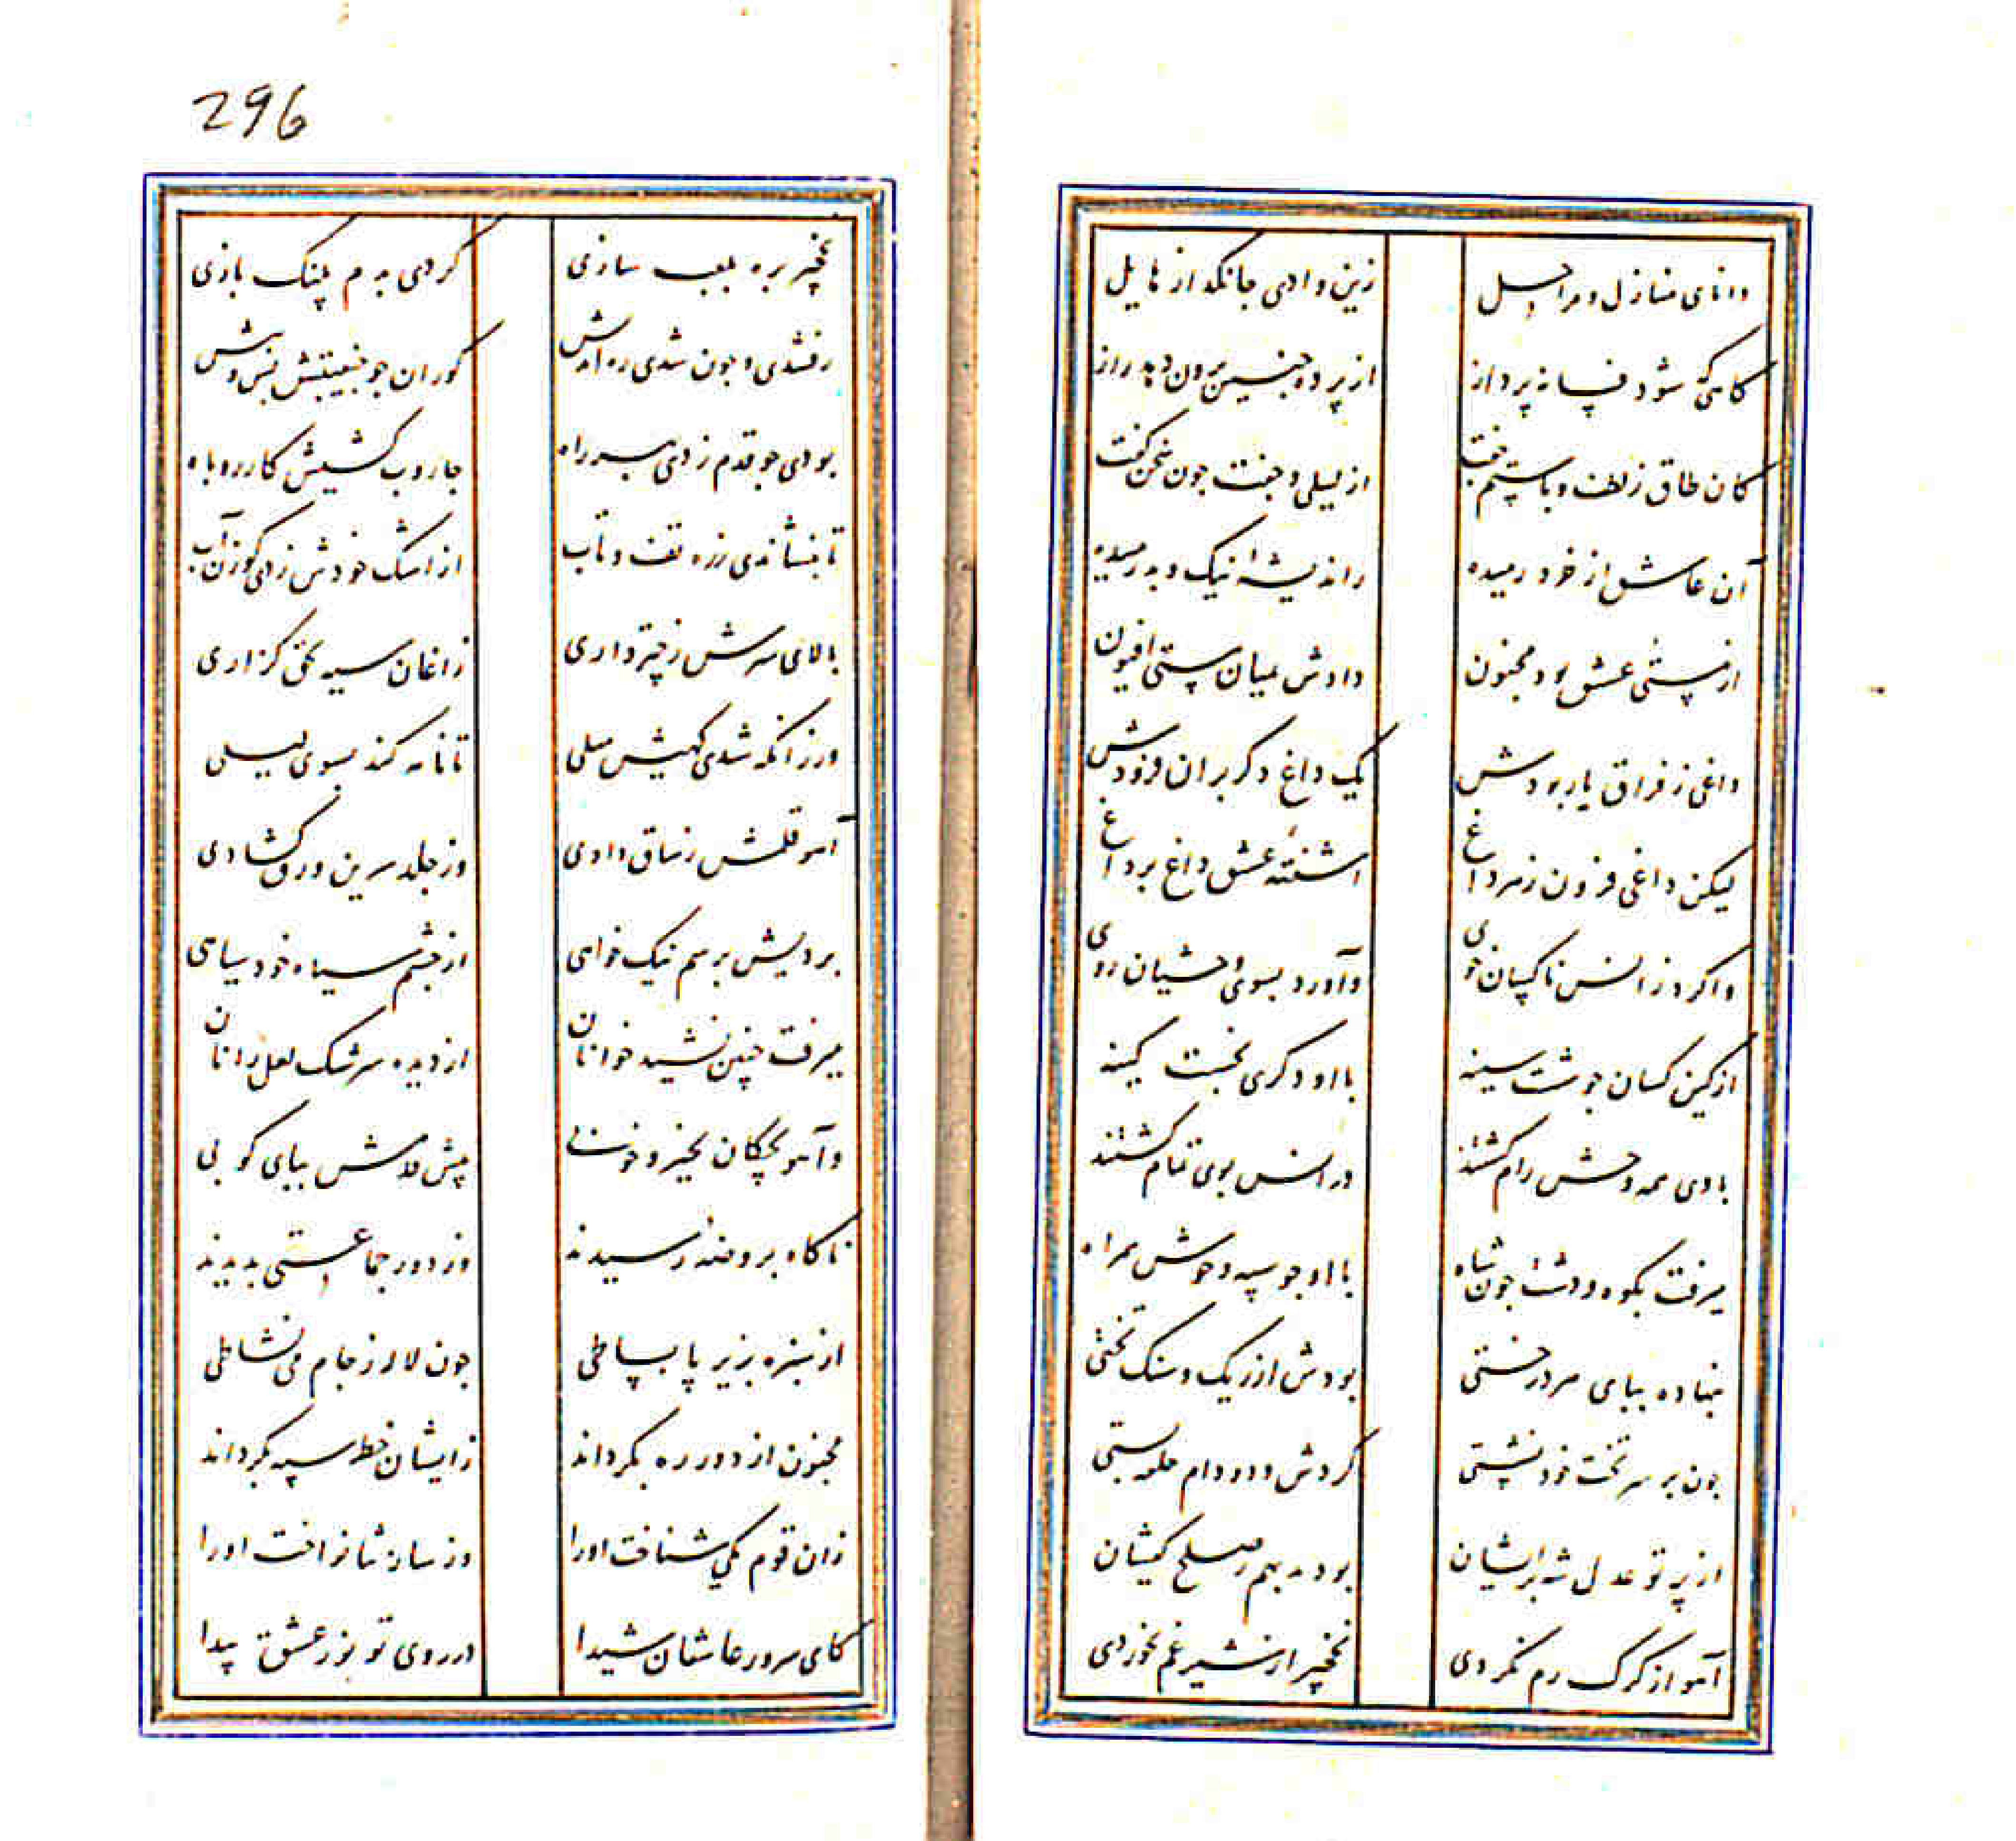 دانای منازل و مراحل زین وادی جانکداز هایل
کاهی که شود فسانه پرداز از پرده جنین برون دهد راز
کان طاق زلطف و با ستم جفت از لیلی و جفت جون سخن کفت
آن عاشق از خود رمیده زاندیشهٔ نیک و بد رمیده
از مستی عشق بود مجنون دادش بمیان مستی افیون
داغی ز فراق یار بودش یک داغ دکر بران فزودش
لیکن داغی فزون ز هر داغ آشفتهٔ عشق داغ بر داغ
واکرد ز انس ناکسان خوی وآورد بسوی وحشیان روی
از کین کسان جو شست سینه با او دکری نجست کینه
با وی همه وحش رام کشتند در انس بوی تمام کشتند
میرفت بکوه و دشت جون شاه با او جو سپه وحوش همراه
بنهاده بپای هر درختی بودش از ریک و سنک تختی
جون بر سر تخت خود نشستی کردش دد و دام حلقه بستی
از پرتو عدل شه برایشان بوده بهم ز صلح کیشان
آهو از کرک رم نکردی نخچیر از شیر غم نخوردی
296
نخچیر بره بلعب سازی کردی بدم پلنک بازی
و جون شدی ره اندیش کوران جو جنیبتش پس و پیش
بودی جو قدم زدی بهر راه جاروب کشیش کار روباه
تا بنشاندی زره تف و تاب از اشک خودش زدی کوزن آب
بالای سرش ز چتر داری زاغان سیه بحق گزاری
ورزانکه شدی کهیش میلی تا نامه کند بسوی لیلی
آهو قلمش ز ساق دادی وز جلد سرین ورق کشادی
بردیش برسم نیک خواهی از چشم سیاه خود سیاهی
میرفت چنین نشید خوانان از دیده سرشک لعل رانان
وآهو بچکان بخیز و پیش قدمش بپای کوبی
ناکاه بروضهٔ رسیدند وز دور جماعتی بدیدند
از سبزه بزیر پا بساطی جون لاله ز جام می نشاطی
مجنون از دور ره بکرداند زایشان خط سیه بکرداند
زان قوم یکی شناخت اورا وز اورا
کای سرور عاشقان شیدا در روی تو نور عشق پیدا